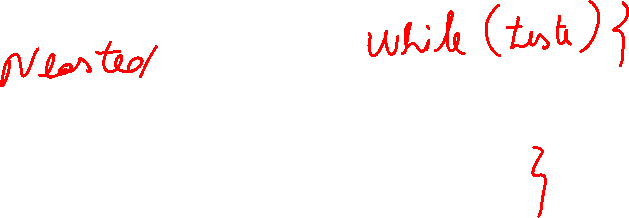 Neasted while (teste) {
}